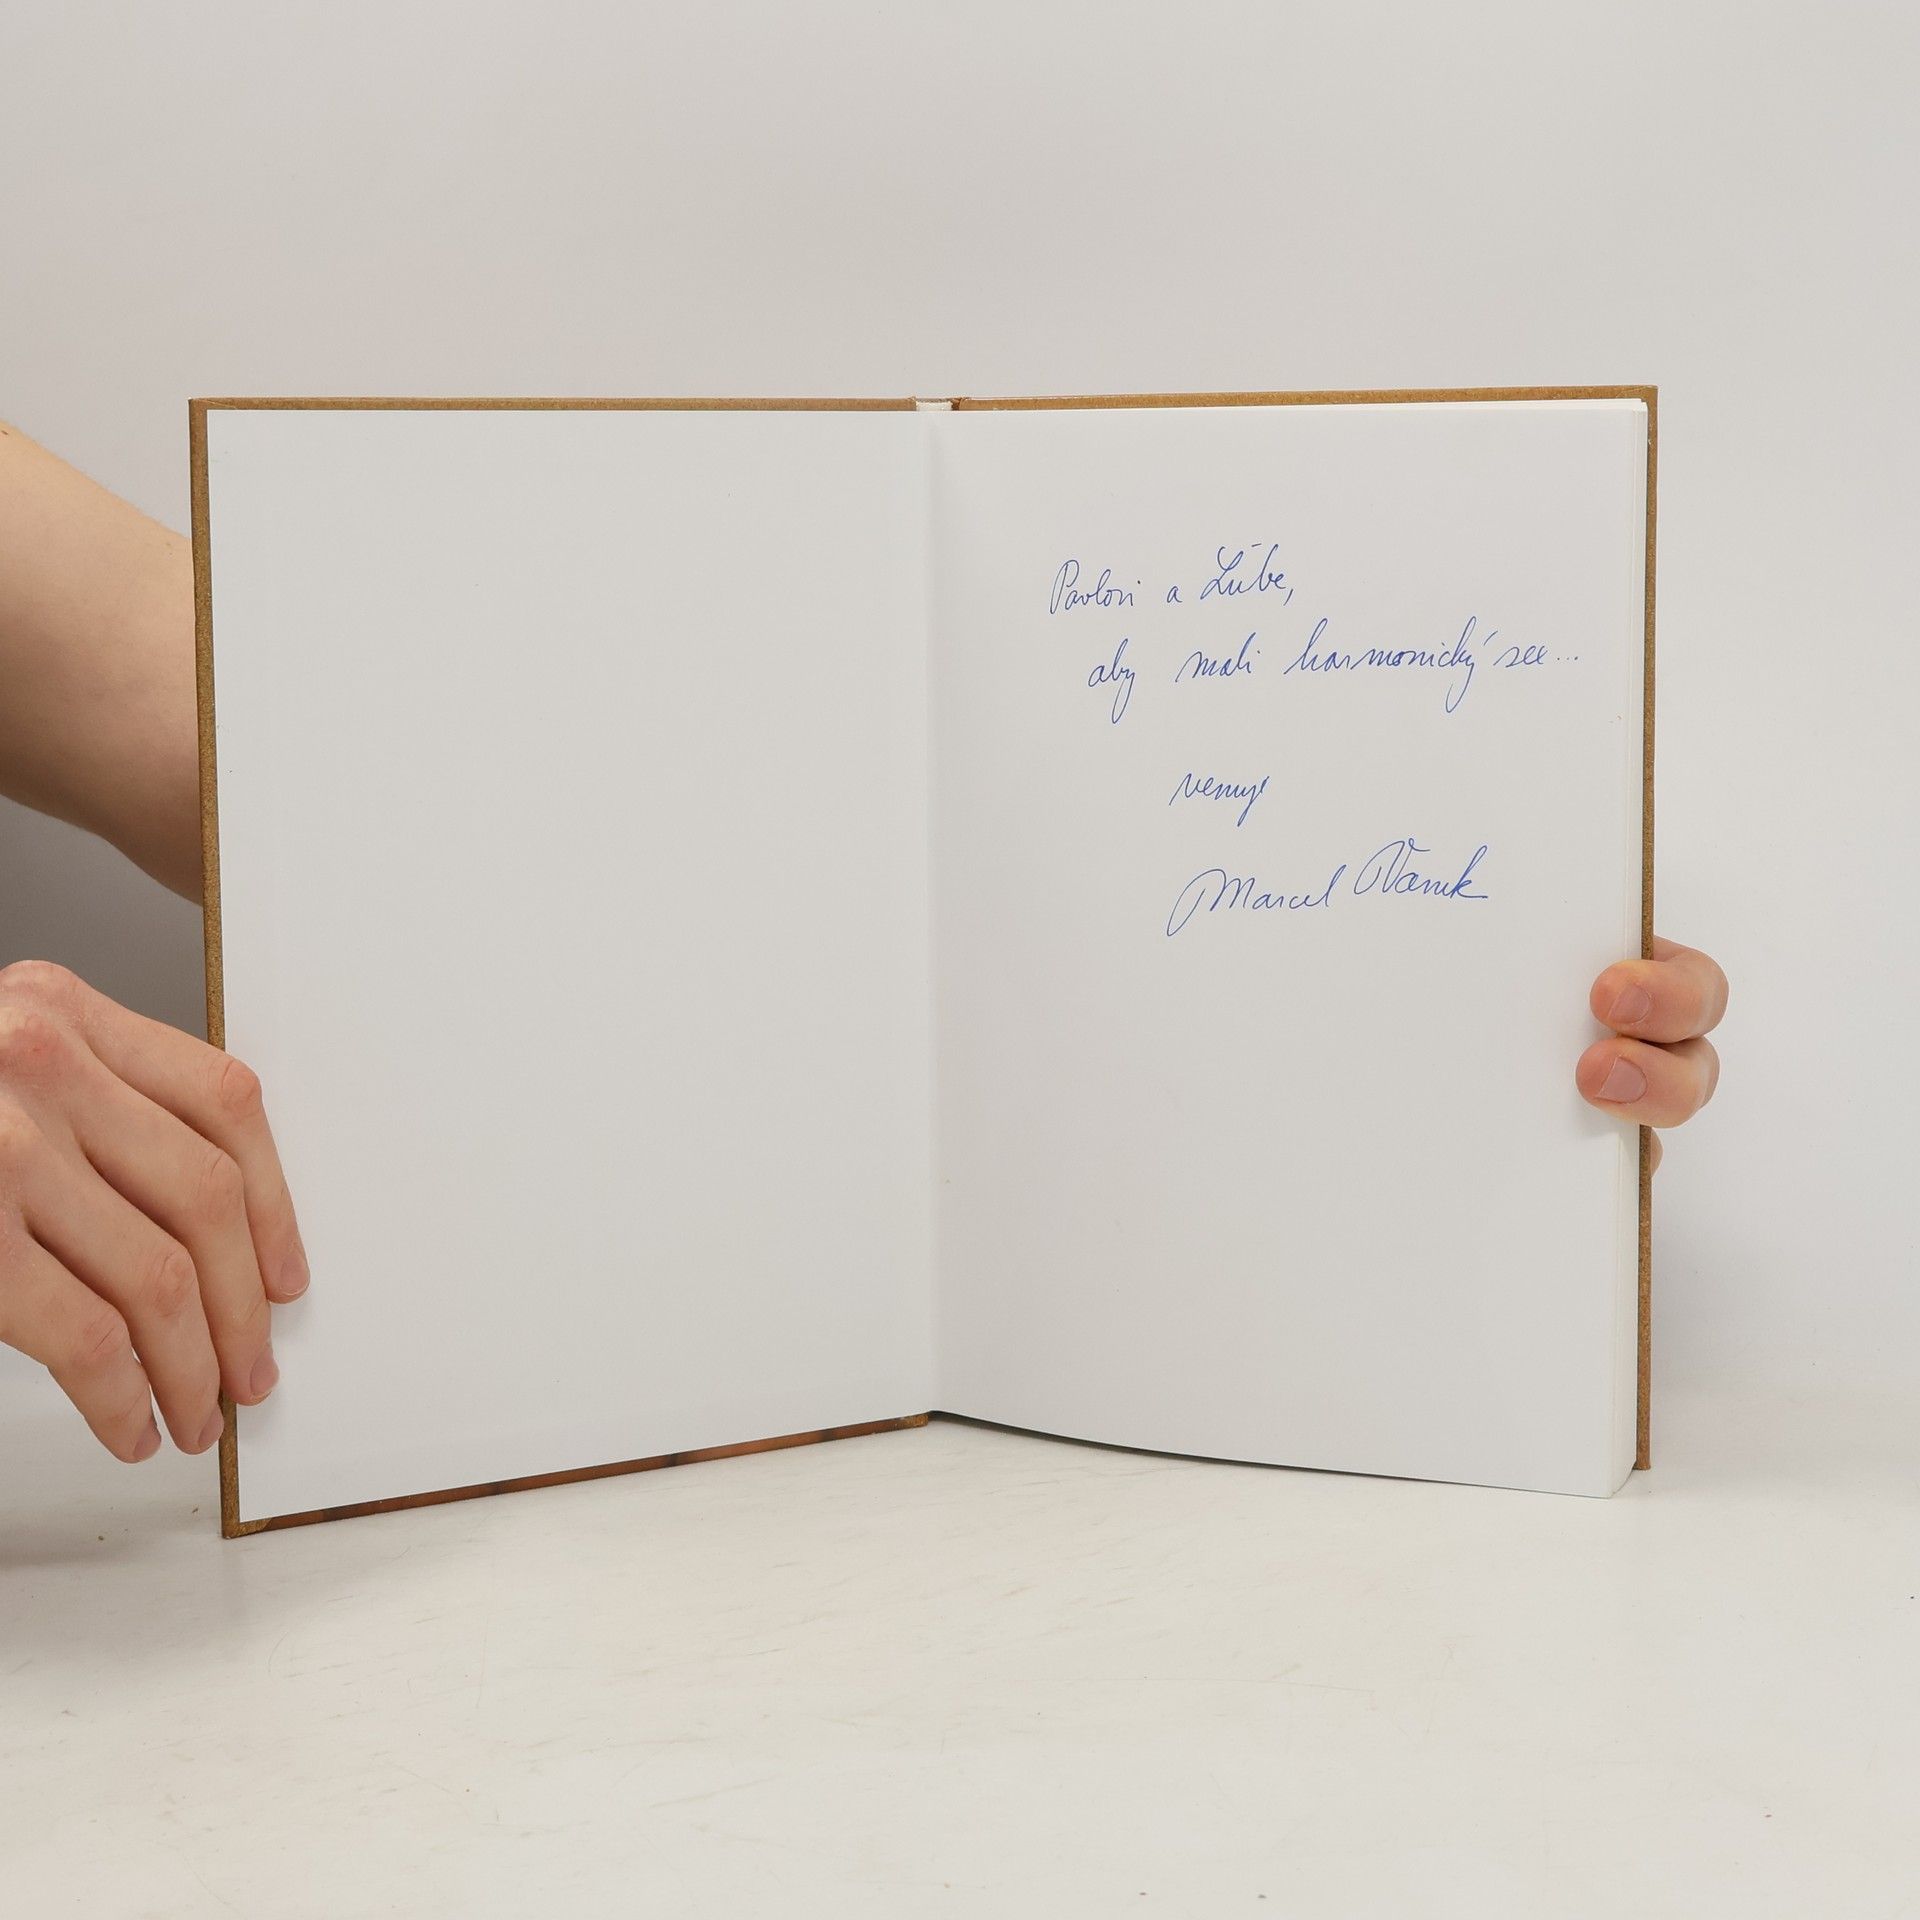 Pavlovi a Ľube,
aby mali harmonický sex...
venuje
Marcel Vanek